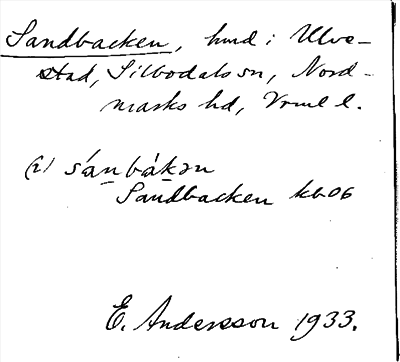 Sandbacken, hmd i Ulve-
stad, Silbodals sn, Nord-
marks hd, Vrml l.
(i) sánbákən
Sandbacken kb 06
E. Andersson 1933.